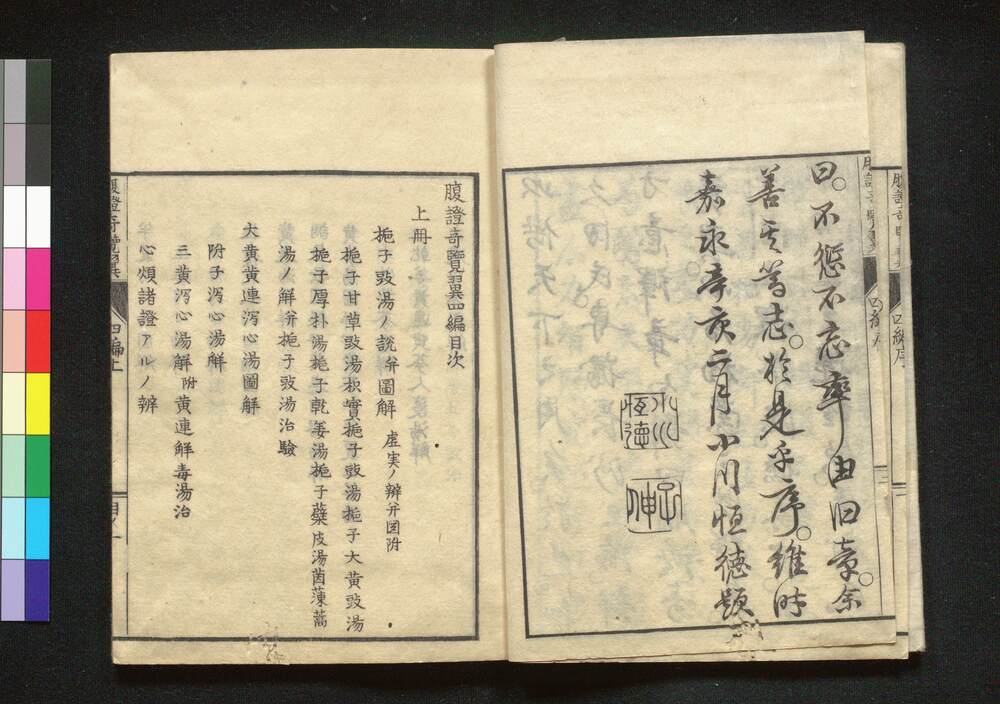 曰。不愆不忘率由旧章。余
善其篤志。於是乎序。維時
嘉永辛亥二月小川恒德題
腹證奇覽翼四編目次
上冊
梔子豉湯ノ説并圖解 虚実ノ辨并図附
梔子甘草豉湯枳實梔子豉湯梔子大黄豉湯
梔子厚朴湯梔子乾姜湯梔子蘗皮湯茵蔯蒿
湯ノ解并梔子豉湯治驗
大黄黄連瀉心湯圖解
附子瀉心湯解
三黄瀉心湯解附黄連解毒湯治
心煩諸證アルノ辨